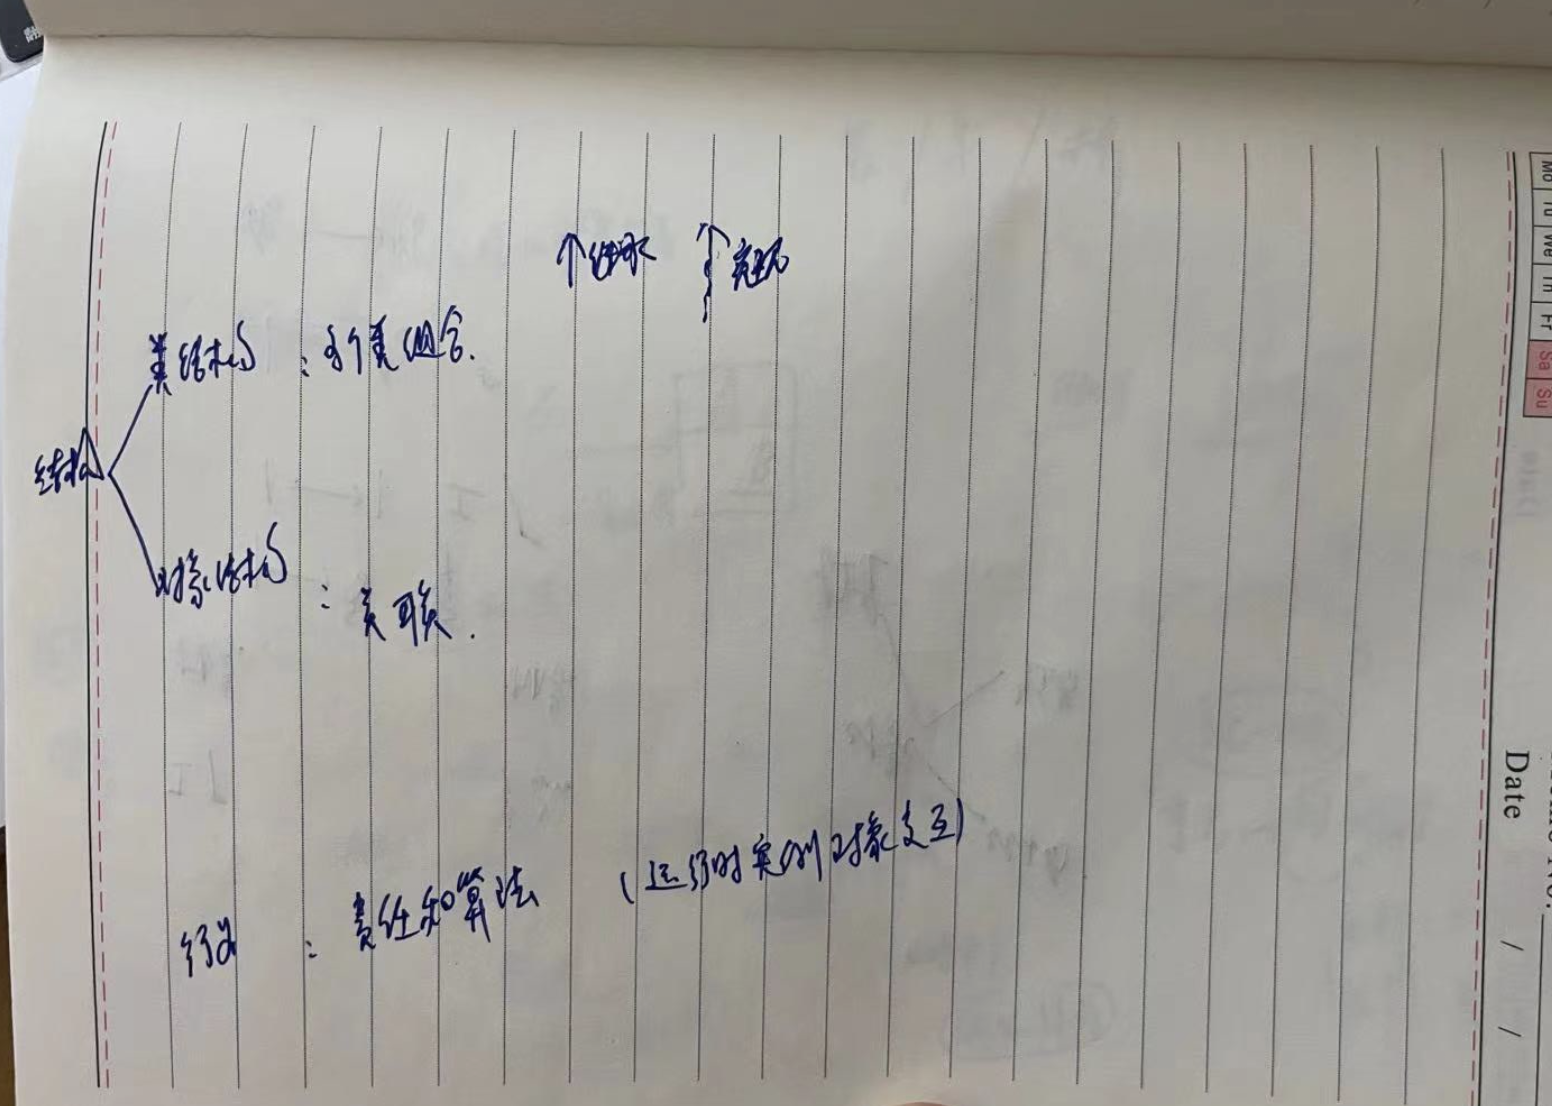 ↑继承 ↑实现
类结构：多个类组合.
结构
对象结构：关联.
行为：责任和算法（运行时实例对象交互）
Mo Tu We Th Fr Sa Su
Date / /